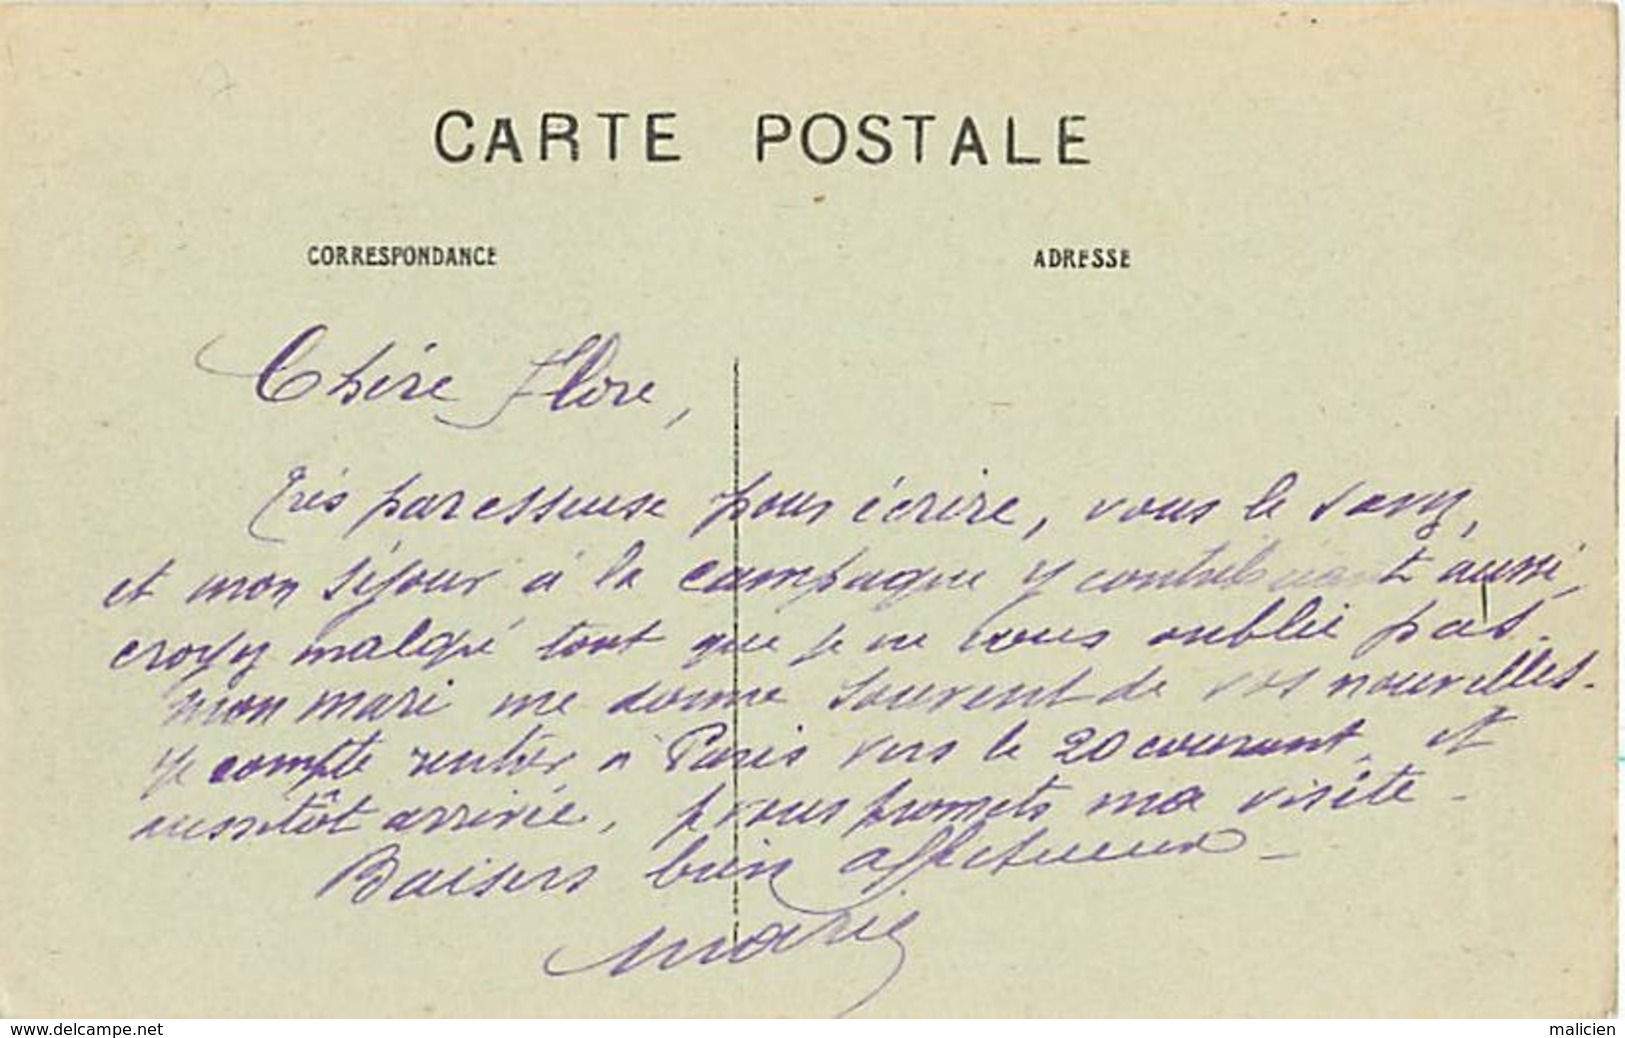 CARTE POSTALE
CORRESPONDANCE
ADRESSE
Chère Flore,
Très paresseuse pour écrire, vous le savez,
et mon séjour à la campagne y contribuant aussi,
croyez malgré tout que je ne vous oublie pas.
mon mari me donne souvent de vos nouvelles.
je compte rentrer à Paris vers le 20 courant, et
aussitôt arrivée, je vous promets ma visite -
Baisers bien affectueux -
Marie
www.delcampe.net
malicien